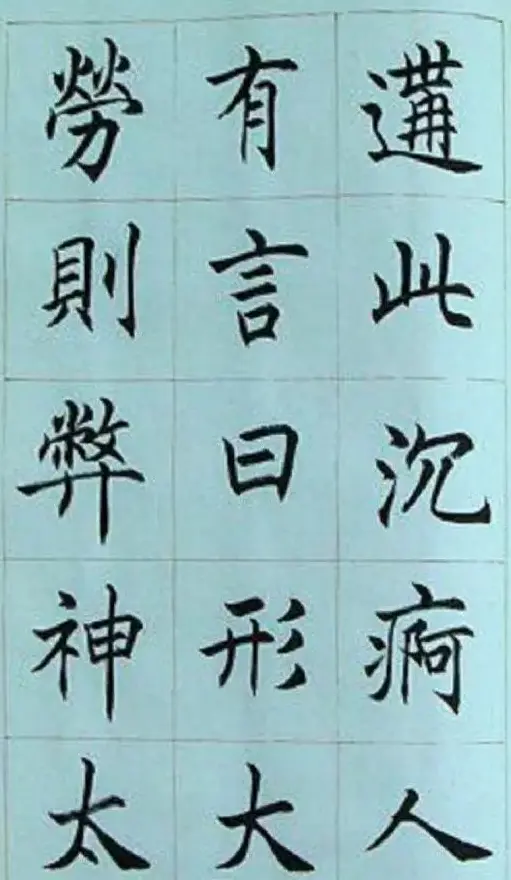 遘此沉痾人
有言曰形大
勞則弊神太